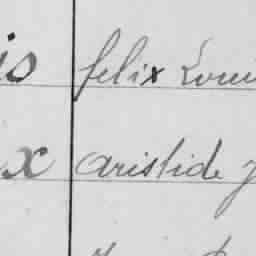 is felix Loui
x aristide